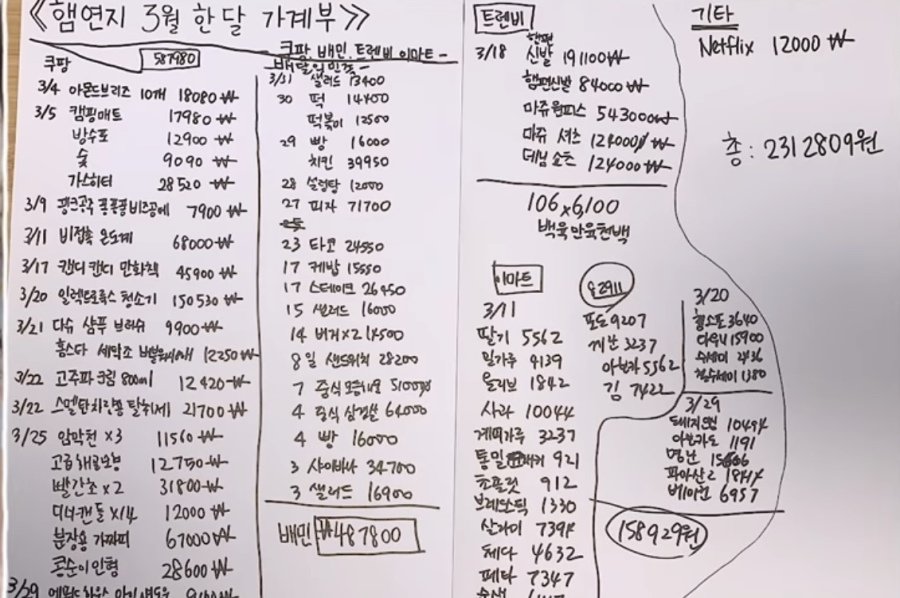 ≪햄연지 3월 한달 가계부≫
쿠팡 587980
3/4 아몬드브리즈 10개 18080₩
3/5 캠핑매트 17980₩
방수포 12900₩
숯 9090₩
가스히터 28520₩
3/9 핑크공주 퐁퐁퐁 비즈공예 7900₩
3/11 비접촉 온도계 68000₩
3/17 캔디캔디 만화책 45900₩
3/20 일렉트로룩스 청소기 150530₩
3/21 다슈 샴푸 브러쉬 9900₩
홈스타 세탁조 12250₩
3/22 고주파 크림 800ml 12420₩
3/22 스멜탄 치킨용 탈취제 21700₩
3/25 암막천 x3 11560₩
12750₩
빨간초 x2 31800₩
디너캔들 x14 12000₩
분장용 가짜피 67000₩
콩순이인형 28600₩
3/29
쿠팡, 배민, 트렌비 이마트 -
배달의민족 -
3/31 샐러드 13400
30 떡 14400
떡볶이 12500
29 빵 16000
치킨 39950
28 설렁탕 12000
27 피자 71700
23 타코 24550
17 케밥 15550
17 스테이크 26950
15 샐러드 16000
14 버거x2 14500
8일 샌드위치 28200
7 중식
4 중식 64000
4 빵 16000
3 샤이바나 34700
3 샐러드 16900
배민 ₩487800
트렌비
3/18 햄편
신발 191100₩
햄편신발 84000₩
마쥬원피스 543000₩
마쥬 셔츠 124000₩
데님쇼츠 124000₩
106x6,100
백육만육천백
이마트
3/11
딸기 5562
밀가루 9139
올리브 1842
사라 10044
계피가루 3237
통밀 921
초콜릿 912
브레드스틱 1330
살라미 7394
체다 4632
페타 7347
82911
포도 9207
계란 3237
아보카 5562
김 7422
3/20
행스포 3640
다우니 15900
수세미
철수세미 1380
3/29
10494
아보카도 1191
명란
파마산
베이컨 6957
158929원
기타
Netflix 12000₩
총 : 2312809원